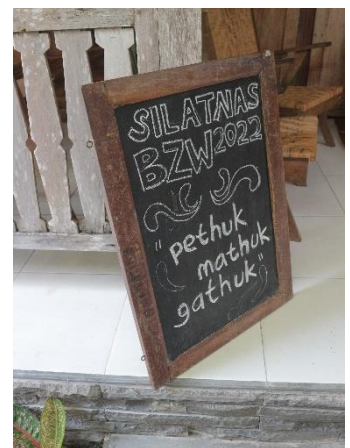 SILATNAS
BZW2022
"pethuk
mathuk
gathuk"